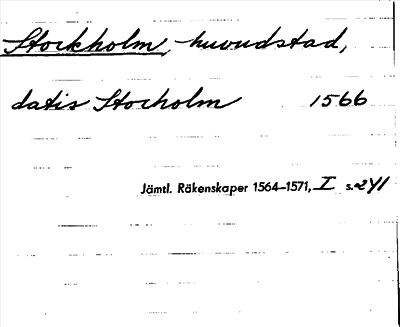 Stockholm, huvudstad,
datis Stocholm 1566
Jämtl. Räkenskaper 1564–1571, I s. 241